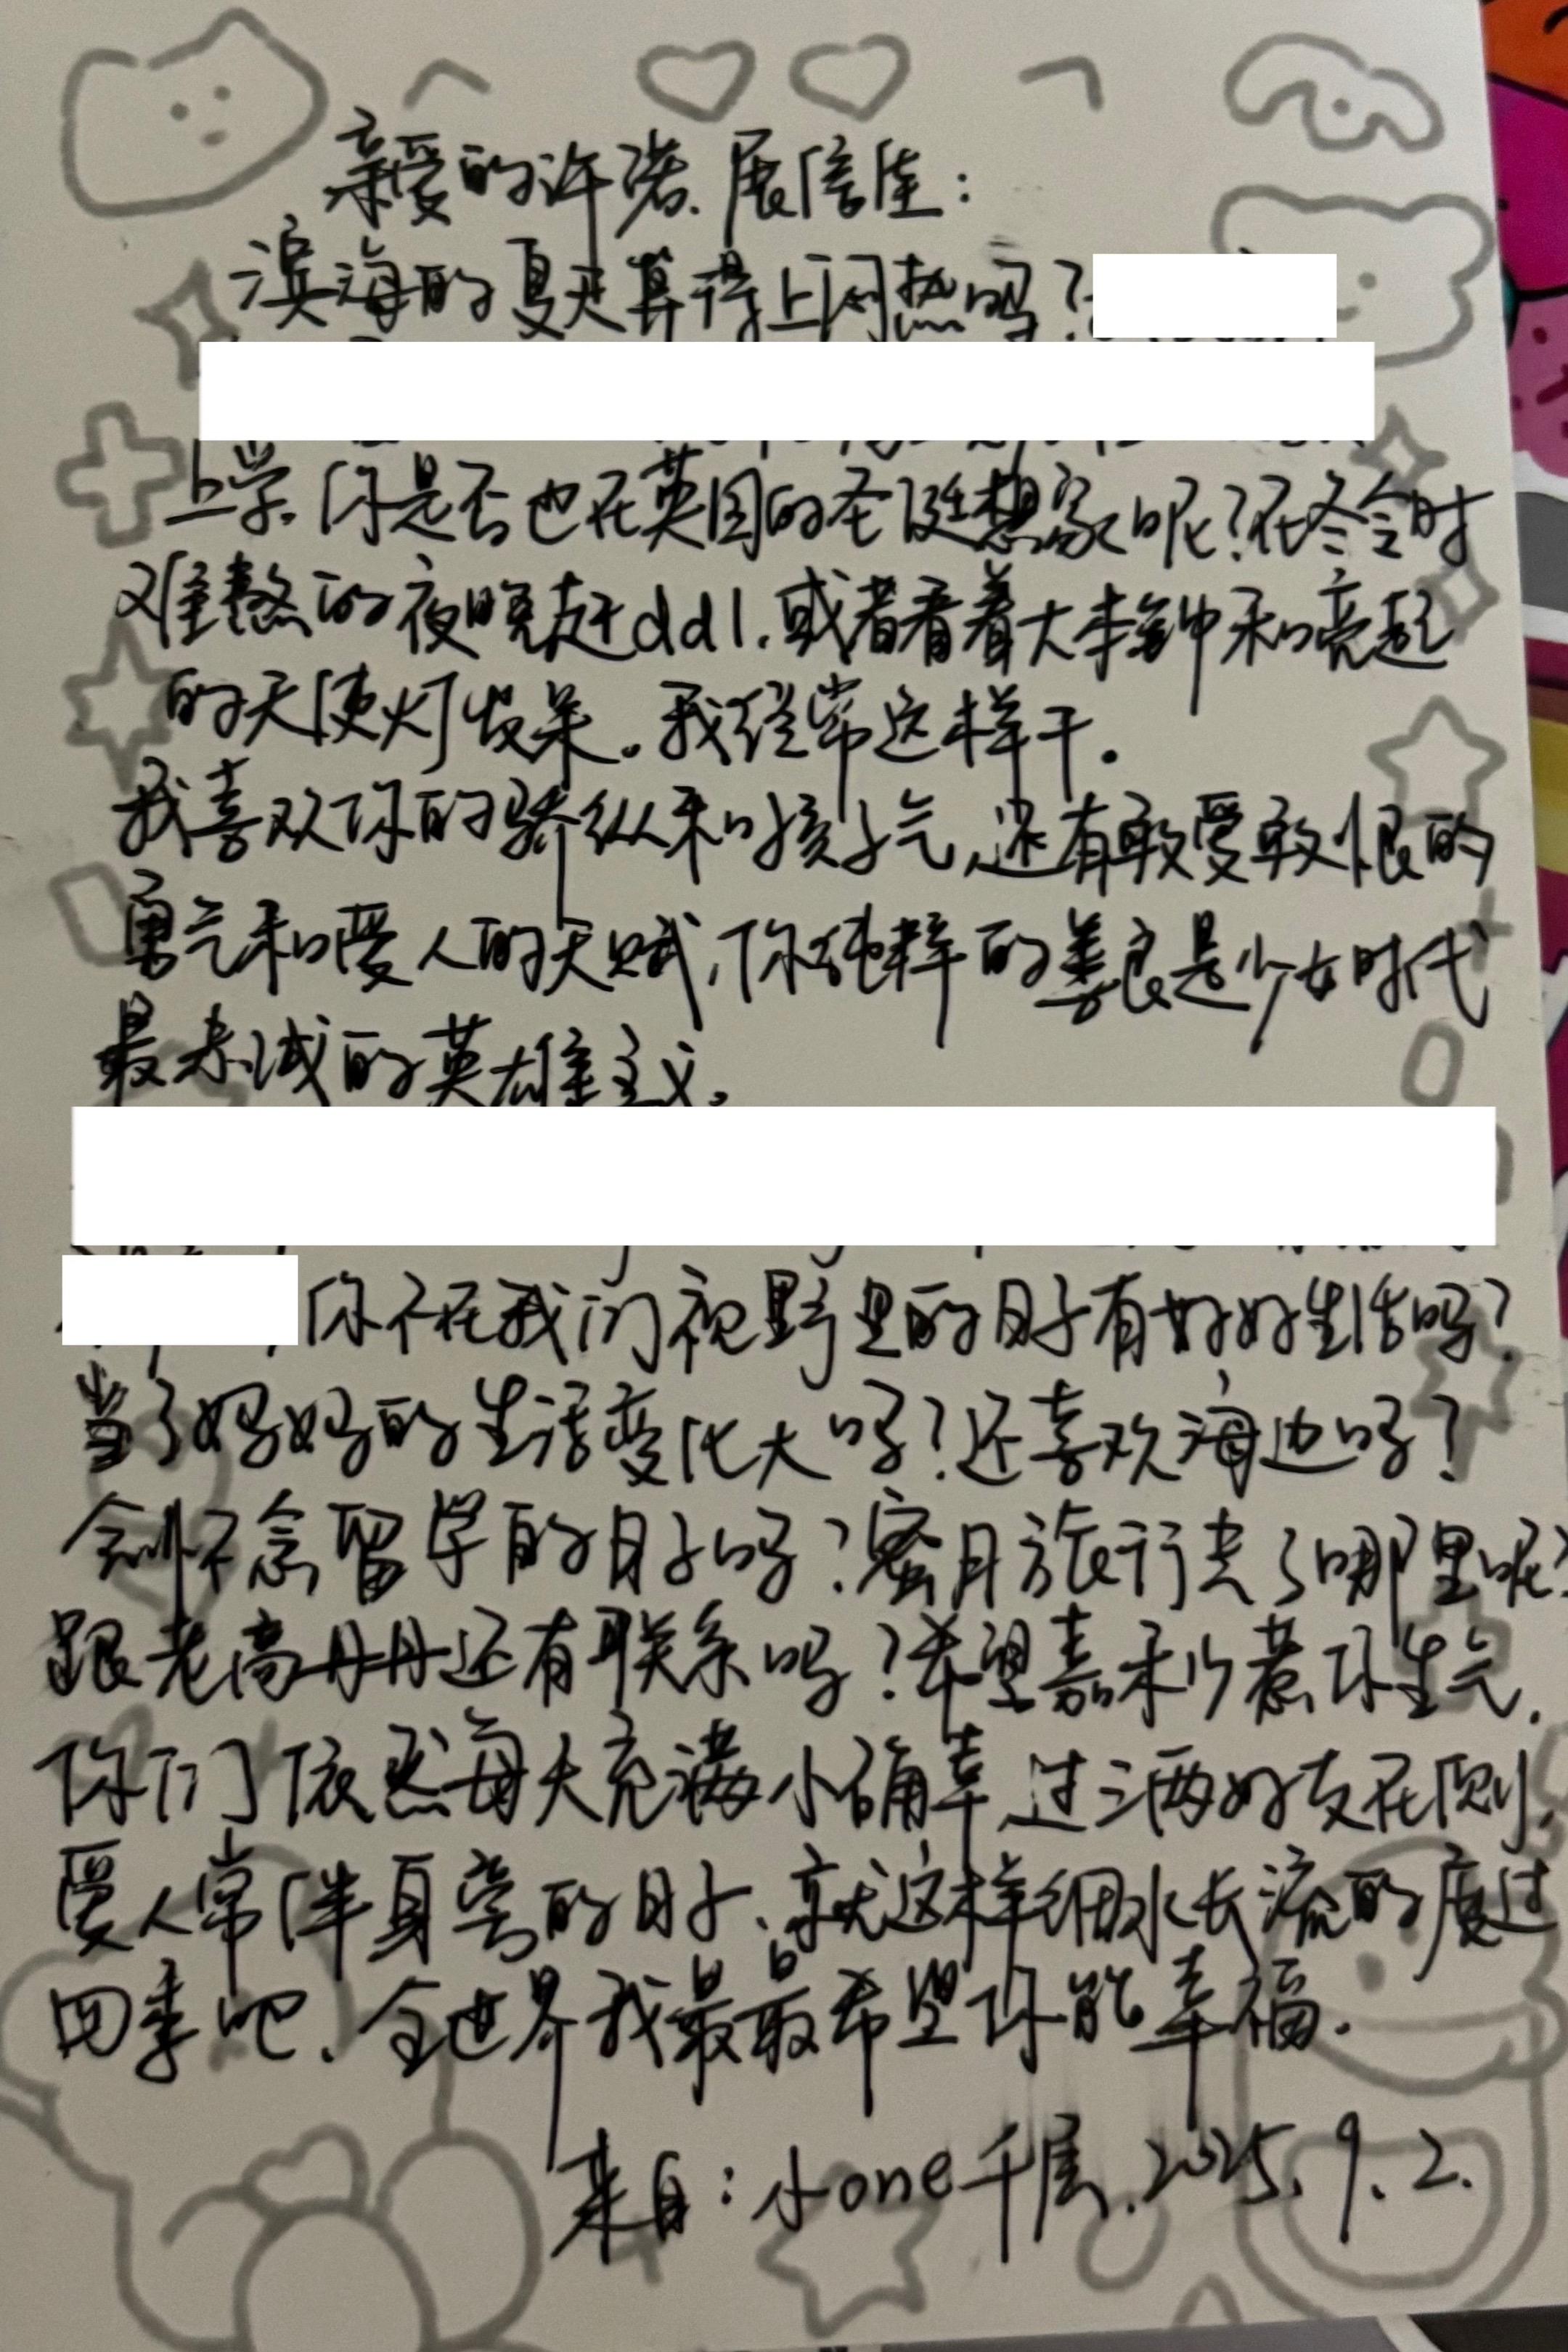 亲爱的许诺、展信佳：
滨海的夏天算得上闷热吗？
上学，你是否也在英国的圣诞想家呢？在冬令时
难熬的夜晚赶ddl，或者看着大本钟和亮起
的天使灯发呆。我经常这样干。
我喜欢你的骄纵和孩子气，还有敢爱敢恨的
勇气和爱人的天赋，你纯粹的善良是少女时代
最赤诚的英雄主义。
你不在我们视野里的日子有好好生活吗？
当了妈妈的生活变化大吗？还喜欢海边吗？
会怀念留学的日子吗？蜜月旅行去了哪里呢？
跟老高丹丹还有联系吗？希望嘉禾少惹你生气，
你们依然每天充满小确幸，过三两好友在侧，
爱人常伴身旁的日子、就这样细水长流的度过
四季吧、全世界我最最希望你能幸福.
来自：小one千层、2025.9.2.